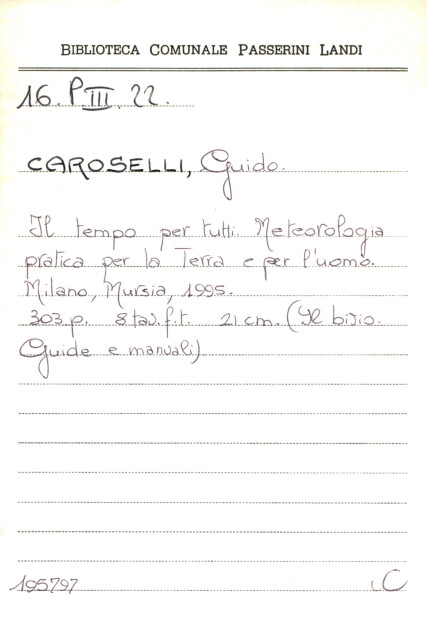 BIBLIOTECA COMUNALE PASSERINI LANDI
16. P. III. 22.
CAROSELLI, Guido.
Il tempo per tutti. Meteorologia
pratica per la Terra e per l'uomo.
Milano, Mursia, 1995.
303 p. 8 tav. f. t. 21 cm. (Il bivio.
Guide e manuali)
195797 C